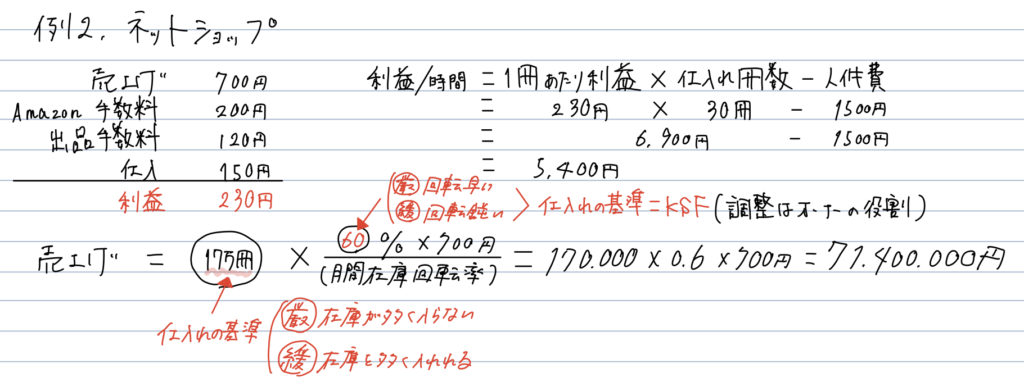 例2. ネットショップ
売上げ 700円 利益/時間 = 1冊あたり利益 × 仕入れ冊数 - 人件費
Amazon 手数料 200円 = 230円 × 30冊 - 1500円
出品手数料 120円 = 6.900円 - 1500円
仕入 150円 = 5,400円
利益 230円
厳 回転早い
緩 回転鈍い
仕入れの基準=KSF(調整はオーナーの役割)
売上げ = 17万冊 × 60% × 700円 = 170.000 × 0.6 × 700円 = 71.400.000円
(月間在庫回転率)
仕入れの基準
厳 在庫が多く入らない
緩 在庫を多く入れれる